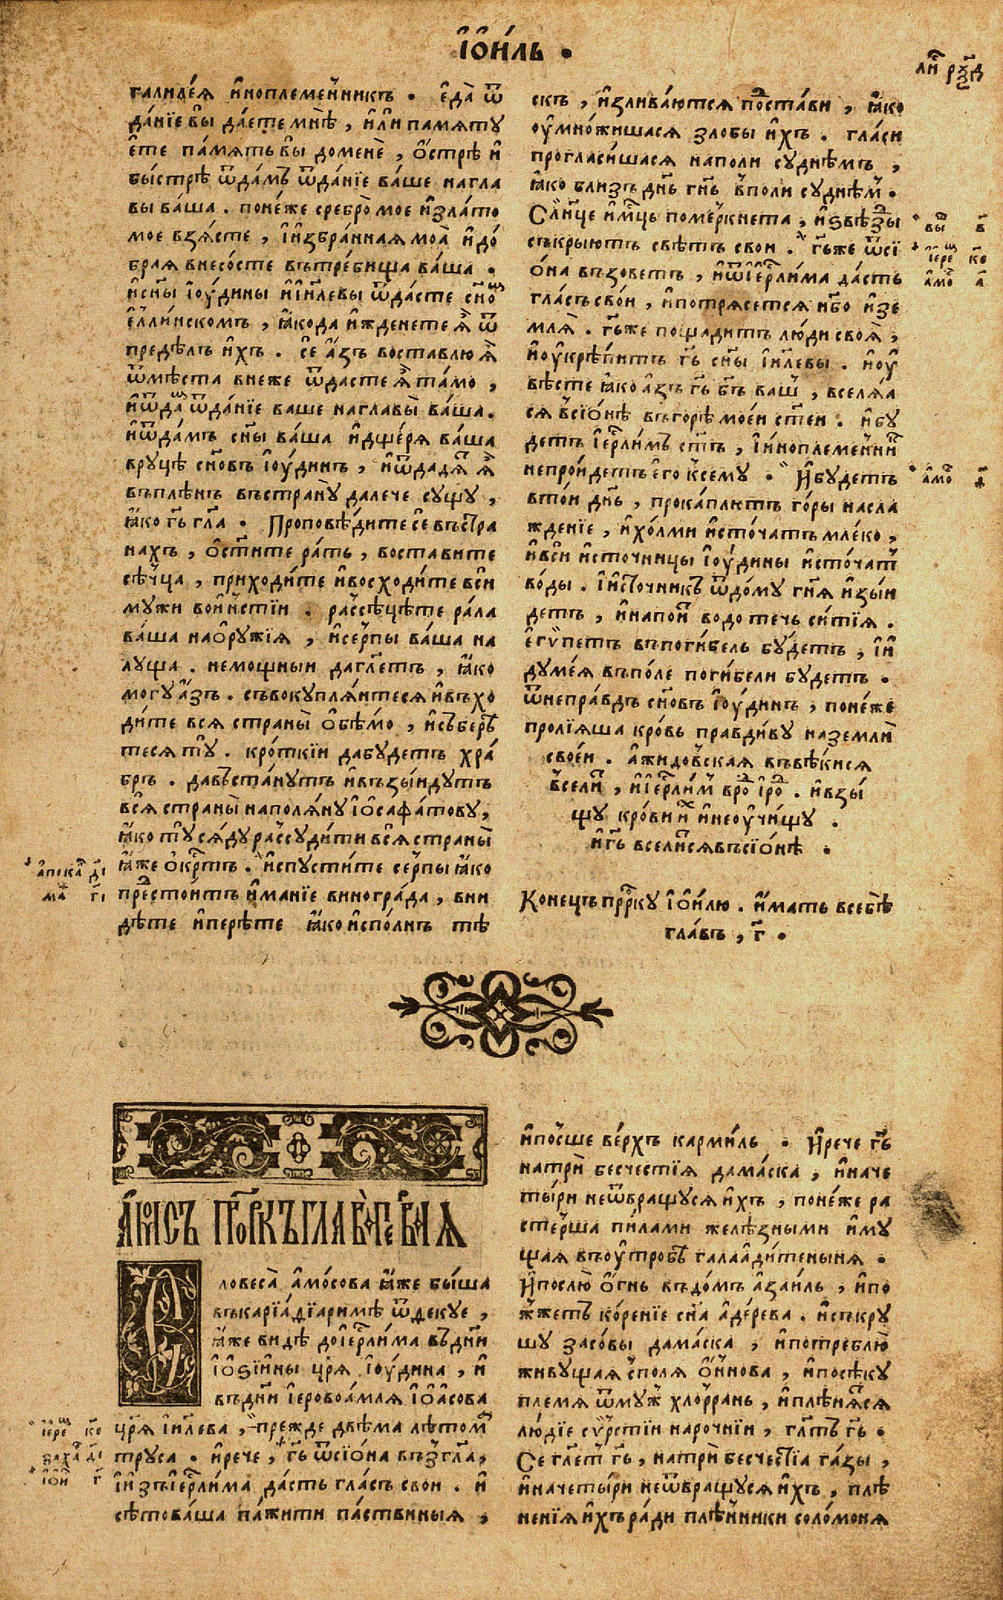 І҆О҆и́ль •
галиде́я и҆ноплеме́нникъ • е҆да̀ ѿ
да́нїе вы да́ете мнѣ̀ , и҆ли̑ памяту
е҆те па́мять вы до менѐ , о҆́стрѣ и҆
быстрѣ ѿда́мъ ѿда́нїе ва́ше на гла
вы ва́ша . поне́же сребро̀ мое и҆ зла́то
мое взя́сте , і҆ и҆збра́нная моа̀ и҆ до́
брая внесо́сте въ тре́бища ва́ша •
и҆ сн҃ы і҆оу́дины и҆ і҆и҃левы ѿда́сте сн҃о
е҆́ллинскомъ , ꙗ҆́ко да и҆жденете ѧ҆̀ ѿ
предѣ́лъ и҆́хъ . се а҆́зъ воставлю ѧ҆̀
ѿ мѣ́ста в неже ѿдасте ѧ҆̀ та́мо ,
и҆ ѿда ѿда́нїе ваше на главы̀ ва́ша .
и҆ ѿда́мъ сн҃ы ва́ша и҆ дще́ря ва́ша
в руцѣ сн҃овъ і҆оу́динъ , и҆ ѿдадѧ ѧ҆̀
въ плѣ́нъ въ страну̀ далече су́щу ,
ꙗ҆́ко гь҃ гл҃а • Проповѣ́дите се въ стра
нахъ , о҆ст҃и́те ра́ть , воставите
сѣ́чца , приходи́те и҆ восходи́те вси́
мужи вои́нстїи . разсѣцѣ́те ра́ла
ва́ша на о҆ру́жїя , и҆ се́рпы ва́ша на
луща . немощныи да гл҃етъ , ꙗ҆́ко
могу а҆́зъ . съвокупля́итеся и҆ въхо
ди́те вся страны̀ о҆бъ́мо , и҆ събер
теся ту . кро́ткїи да будетъ хра́
бръ . да въста́нутъ и҆ възы́идутъ
вся̀ страны̀ на поля́ну і҆о҆сафа́тову ,
ꙗ҆́ко ту ся́ду разсуди́ти вся̀ страны̀
ꙗ҆́же о҆́крт҃ъ . и҆спусти́те се́рпы ꙗ҆́ко
престои́тъ и҆мание виногра́да , вни
дѣ́те и҆ перѣ́те ꙗ҆́ко и҆спо́лнъ тѣ́
а҆пока д҃і
ма г҃і
ли рч҃д
скъ , и҆зливаю́тся поста́ви , ꙗ҆́ко
оу҆мно́жишася злобы и҆́хъ . гла́си
прогласи́шася на поли су́днѣмъ ,
ꙗ҆́ко близъ дн҃ь гн҃ь в поли су́днѣм •
Сл҃нце и҆ мц҃ь поме́ркнета , и҆ ѕвѣ́зды
съкрыютъ свѣ́тъ свои . гь҃ же ѿ сї
о́на възове́тъ , и҆ ѿ і҆ер҃ли́ма да́сть
гла́съ сво́и , и҆ потрясе́тся нб҃о и҆ зе
мля̀ . гь҃ же пощади́тъ лю́ди своя̀ ,
и҆ оу҆крѣпи́тъ гь҃ сн҃ы і҆и҃левы . и҆ оу҆
вѣ́сте ꙗ҆́ко а҆́зъ гь҃ бг҃ъ ва́ш , вселя́а
ся в сїо́нѣ въ горѣ̀ мое́и ст҃еи . и҆ бу
детъ і҆ер҃ли́мъ ст҃ъ , і҆ и҆ноплеме́нни
не про́идетъ е҆го к сему̀ • И҆ бу́детъ
в то́и дн҃ь , прокапли́ютъ го́ры насла
жде́нїе , и҆ хо́лми и҆сто́чатъ мле́ко ,
и҆ вси́ и҆сто́чницы і҆оу́дины и҆сто́чат
во́ды . і҆ и҆сто́чникъ ѿ до́му гн҃я и҆зы́и
детъ , и҆ напои водо течь си́тїя .
е҆гѵ́петъ въ поги́бель бу́детъ , і҆ и҆
думе́я въ по́ле поги́бели бу́детъ •
ѿ непра́вдъ сн҃овъ і҆оу́динъ , поне́же
пролїя́ша кро́вь пра́вдиву на земли̑
свое́и . а҆ жидо́вская въ вѣ́ки ся
всели , и҆ і҆ер҃ли́м в ро і҆ ро . и҆ взы́
щу кро́ви и҆ и҆ не оу҆чи́щу .
и҆ гь҃ всели́ся въ сїо́нѣ •
Конецъ пр҃рку І҆о҆́илю . и҆́мать в себѣ̀
гла́въ , г҃ •
вы в҃
і҆ере к҃е
а҆мо а҃
а҆мо ѳ҃
А҆мо́съ пр҃ркъ глава̀ пе́рвая
Словеса̀ а҆мо́сова ꙗ҆́же бы́ша
въ карїа́дїаримѣ ѿ декуе ,
ꙗ҆́же ви́дѣ до і҆ер҃ли́ма въ дн҃и
і҆о҆ѕїи́ны цр҃я і҆оу́дина , и҆
въ дн҃и і҆еровоа́мля і҆о҆а́сова
цр҃я і҆и҃лева , пре́жде двѣ́ма лѣ́том
тру́са • и҆ рече , гь҃ ѿ сїо́на възгла ,
і҆ и҆зъ і҆ер҃ли́ма да́сть гла́съ свои . и҆
сѣ́товаша па́жити па́ствиныя ,
і҆ере к҃е
заха д҃і
і҆о҆и г҃
и҆ по́сше ве́рхъ карми́ль • И҆ рече гь҃
на три̑ бесче́стїя дама́ска , и҆ на че
ты́ри не ѿвращу́ся и҆́хъ , поне́же ра
сте́рша пи́лами желѣ́зными и҆му́
щая въ оу҆тро́бѣ галаади́теныня •
и҆ послю̀ о҆́гнь въ до́мъ а҆заи́ль , и҆ по
жже́тъ ко́ренїе сн҃а а҆де́рева . и҆ съкру
шу засо́вы дама́ска , и҆ потреблю̀
живу́щая с поля о҆́ннова , и҆ посѣ́ку
племя ѿ муж хлоррань , и҆ плѣня́ся
лю́дїе сѵ́рстїи наро́чнїи , гл҃тъ гь҃ •
Се гл҃ет гь҃ , на три̑ бесче́стїа га́зы ,
и҆ на четы́ри не ѿвращу́ся и҆́хъ , плѣ
не́нїя и҆́хъ ра́ди плѣ́нники соло́моня